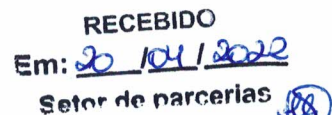 RECEBIDO
Em: 20 /04 / 2022
Setor de parcerias